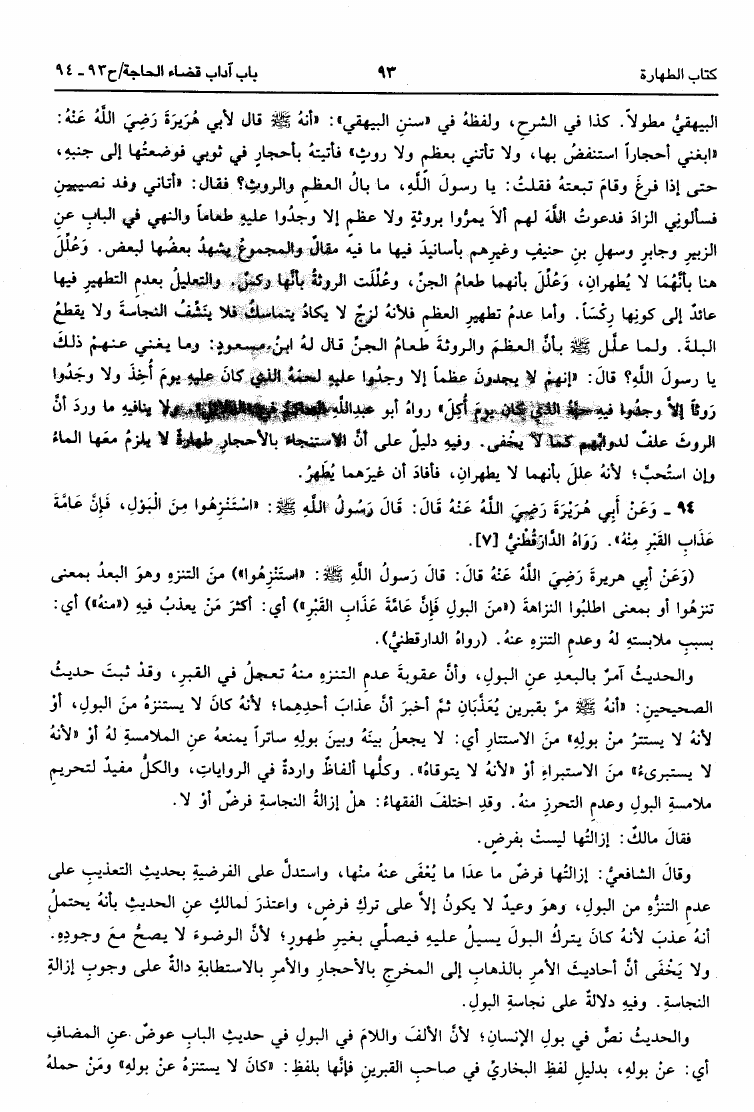 كتاب الطهارة ٩٣ باب آداب قضاء الحاجة/ح٩٣ـ ٩٤
البيهقيُّ مطولاً. كذا في الشرحِ، ولفظهُ في «سننِ البيهقي»: «أنهُ ﷺ قال لأبي هُرَيرَةَ رَضِيَ اللَّهُ عَنْهُ:
«ابغني أحجاراً استنفضُ بها، ولا تأتني بعظمٍ ولا روثٍ» فأتيتهُ بأحجارٍ في ثوبي فوضعتُها إلى جنبهِ،
حتى إذا فرغَ وقامَ تبعتهُ فقلتُ: يا رسولَ اللَّهِ، ما بالُ العظمِ والروثِ؟ فقال: «أتاني وفد نصيبين
فسألوني الزادَ فدعوتُ اللَّهَ لهم ألاَ يمرُّوا بروثةٍ ولا عظمٍ إلا وجدُوا عليهِ طعاماً والنهي في البابِ عنِ
الزبيرِ وجابرٍ وسهلِ بنِ حنيفٍ وغيرِهم بأسانيدَ فيها ما فيه مقالٌ والمجموعُ يشهدُ بعضُها لبعضٍ. وَعُلِّلَ
هنا بأنَّهُمَا لا يُطهرانِ، وَعُلِّلَ بأنهما طعامُ الجنِّ، وعُلِّلَت الروثةُ بأنَّها ركسٌ. والتعليلُ بعدمِ التطهيرِ فيها
عائدٌ إلى كونِها رِكْسَاً. وأما عدمُ تطهيرِ العظمِ فلأنهُ لزجٌ لا يكادُ يتماسكُ فلا ينَشِّفُ النجاسةَ ولا يقطعُ
البلةَ. ولما علَّل ﷺ بأنَّ العظمَ والروثةَ طعامُ الجنِّ قال لهُ ابنُ مسعودٍ: وما يغني عنهمْ ذلكَ
يا رسولَ اللَّهِ؟ قالَ: «إنهمْ لا يجدونَ عظماً إلا وجدُوا عليهِ لحمَهُ الذي كانَ عليهِ يومَ أُخِذَ ولا وجَدُوا
رَوثاً إلاَّ وجدُوا فيهِ حبَّهُ الذي كان يومَ أُكِلَ» رواهُ أبو عبدِاللَّهِ الحاكمُ في «الدلائل». ولا ينافيهِ ما وردَ أنَّ
الروثَ علفٌ لدوابهِم كما لا يخْفى. وفيهِ دليلٌ على أنَّ الاستنجاءَ بالأحجارِ طهارةٌ لا يلزمُ معَها الماءُ
وإن استُحبَّ؛ لأنهُ عللَ بأنهما لا يطهرانِ، فأفادَ أن غيرَهما يُطَهرُ.
٩٤ ـ وَعَنْ أَبِي هُرَيْرَةَ رَضِيَ اللَّهُ عَنْهُ قَالَ: قَالَ رَسُولُ اللَّهِ ﷺ: «اسْتَنْزِهُوا مِنَ الْبَوْلِ، فَإِنَّ عَامَّةَ
عَذَابِ القَبْرِ مِنْهُ». رَوَاهُ الدَّارَقُطْنِيُّ [٧].
(وَعَنْ أبي هريرةَ رَضِيَ اللَّهُ عَنْهُ قالَ: قالَ رَسولُ اللَّهِ ﷺ: «استَنْزِهُوا») منَ التنزهِ وهوَ البعدُ بمعنى
تنزهُوا أو بمعنى اطلبُوا النزاهةَ («منَ البولِ فَإِنَّ عَامَّةَ عَذَابِ القَبْرِ») أي: أكثرَ مَنْ يعذبُ فيهِ («منهُ») أي:
بسببِ ملابستهِ لهُ وعدمِ التنزهِ عنهُ. (رواهُ الدارقطنيُّ).
والحديثُ آمرٌ بالبعدِ عنِ البولِ، وأنَّ عقوبةَ عدمِ التنزهِ منهُ تعجلُ في القبرِ، وقدْ ثبتَ حديثُ
الصحيحينِ: «أنهُ ﷺ مرَّ بقبرينِ يُعَذَّبَانِ ثمَّ أخبرَ أنَّ عذابَ أحدِهما؛ لأنهُ كانَ لا يستنزهُ منَ البولِ، أوْ
لأنهُ لا يستترُ منْ بولِهِ» منَ الاستتارِ أي: لا يجعلُ بينَهُ وبينَ بولِهِ ساتراً يمنعهُ عنِ الملامسةِ لهُ أوْ «لأنهُ
لا يستبرىءُ» منَ الاستبراءِ أوْ «لأنهُ لا يتوقاهُ». وكلُّها ألفاظٌ واردةٌ في الرواياتِ، والكلُّ مفيدٌ لتحريمِ
ملامسةِ البولِ وعدمِ التحرزِ منهُ. وقدِ اختلفَ الفقهاءُ: هلْ إزالةُ النجاسةِ فرضٌ أوْ لا.
فقالَ مالكٌ: إزالتُها ليستْ بفرضٍ.
وقالَ الشافعيُّ: إزالتُها فرضٌ ما عدَا ما يُعْفَى عنهُ منْها، واستدلَّ على الفرضيةِ بحديثِ التعذيبِ على
عدمِ التنزُّهِ من البولِ، وهوَ وعيدٌ لا يكونُ إلاَّ على تركِ فرضٍ، واعتذرَ لمالكٍ عنِ الحديثِ بأنهُ يحتملُ
أنهُ عذبَ لأنهُ كانَ يتركُ البولَ يسيلُ عليهِ فيصلِّي بغيرِ طهورٍ؛ لأنَّ الوضوءَ لا يصحُّ معَ وجودِهِ.
ولا يَخْفَى أنَّ أحاديثَ الأمرِ بالذهابِ إلى المخرجِ بالأحجارِ والأمرِ بالاستطابةِ دالةٌ على وجوبِ إزالةِ
النجاسةِ. وفيهِ دلالةٌ على نجاسةِ البولِ.
والحديثُ نصٌّ في بولِ الإنسانِ؛ لأنَّ الألفَ واللامَ في البولِ في حديثِ البابِ عوضٌ عنِ المضافِ
أي: عنْ بولهِ، بدليلِ لفظِ البخاريِّ في صاحبِ القبرينِ فإنَّها بلفظِ: «كانَ لا يستنزهُ عنْ بولِهِ» ومَنْ حملَهُ